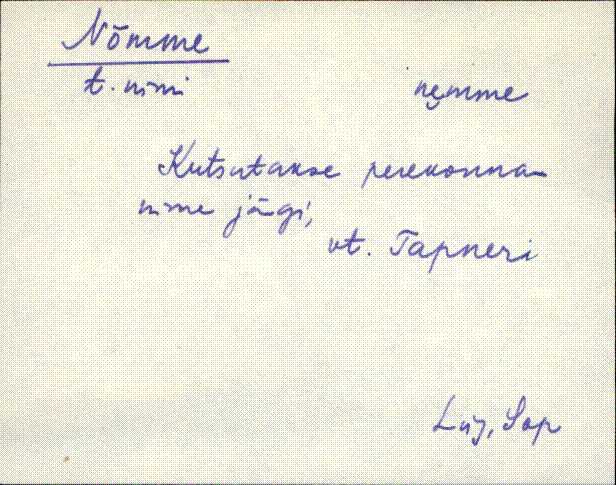 Nõmme
t. nimi   nęmme
Kutsutakse perekonna-
nime järgi,
vt. Tapneri
Lüg, Sop